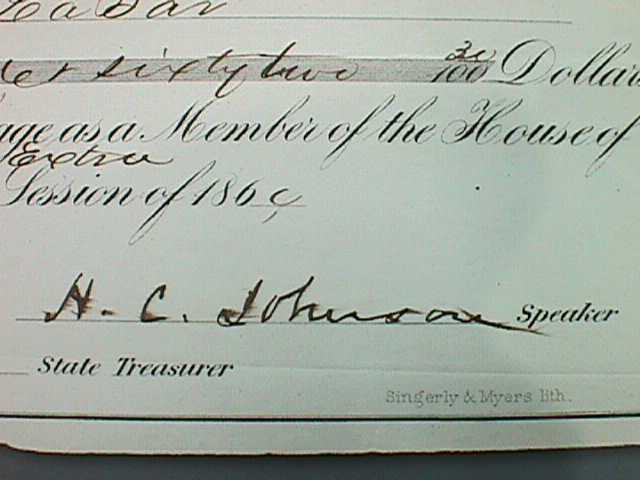 LaBar
sixty two 30/100 Dollar
age as a Member of the House of
Extra
Session of 186
H. C. Johnson Speaker
State Treasurer
Singerly & Myers lith.